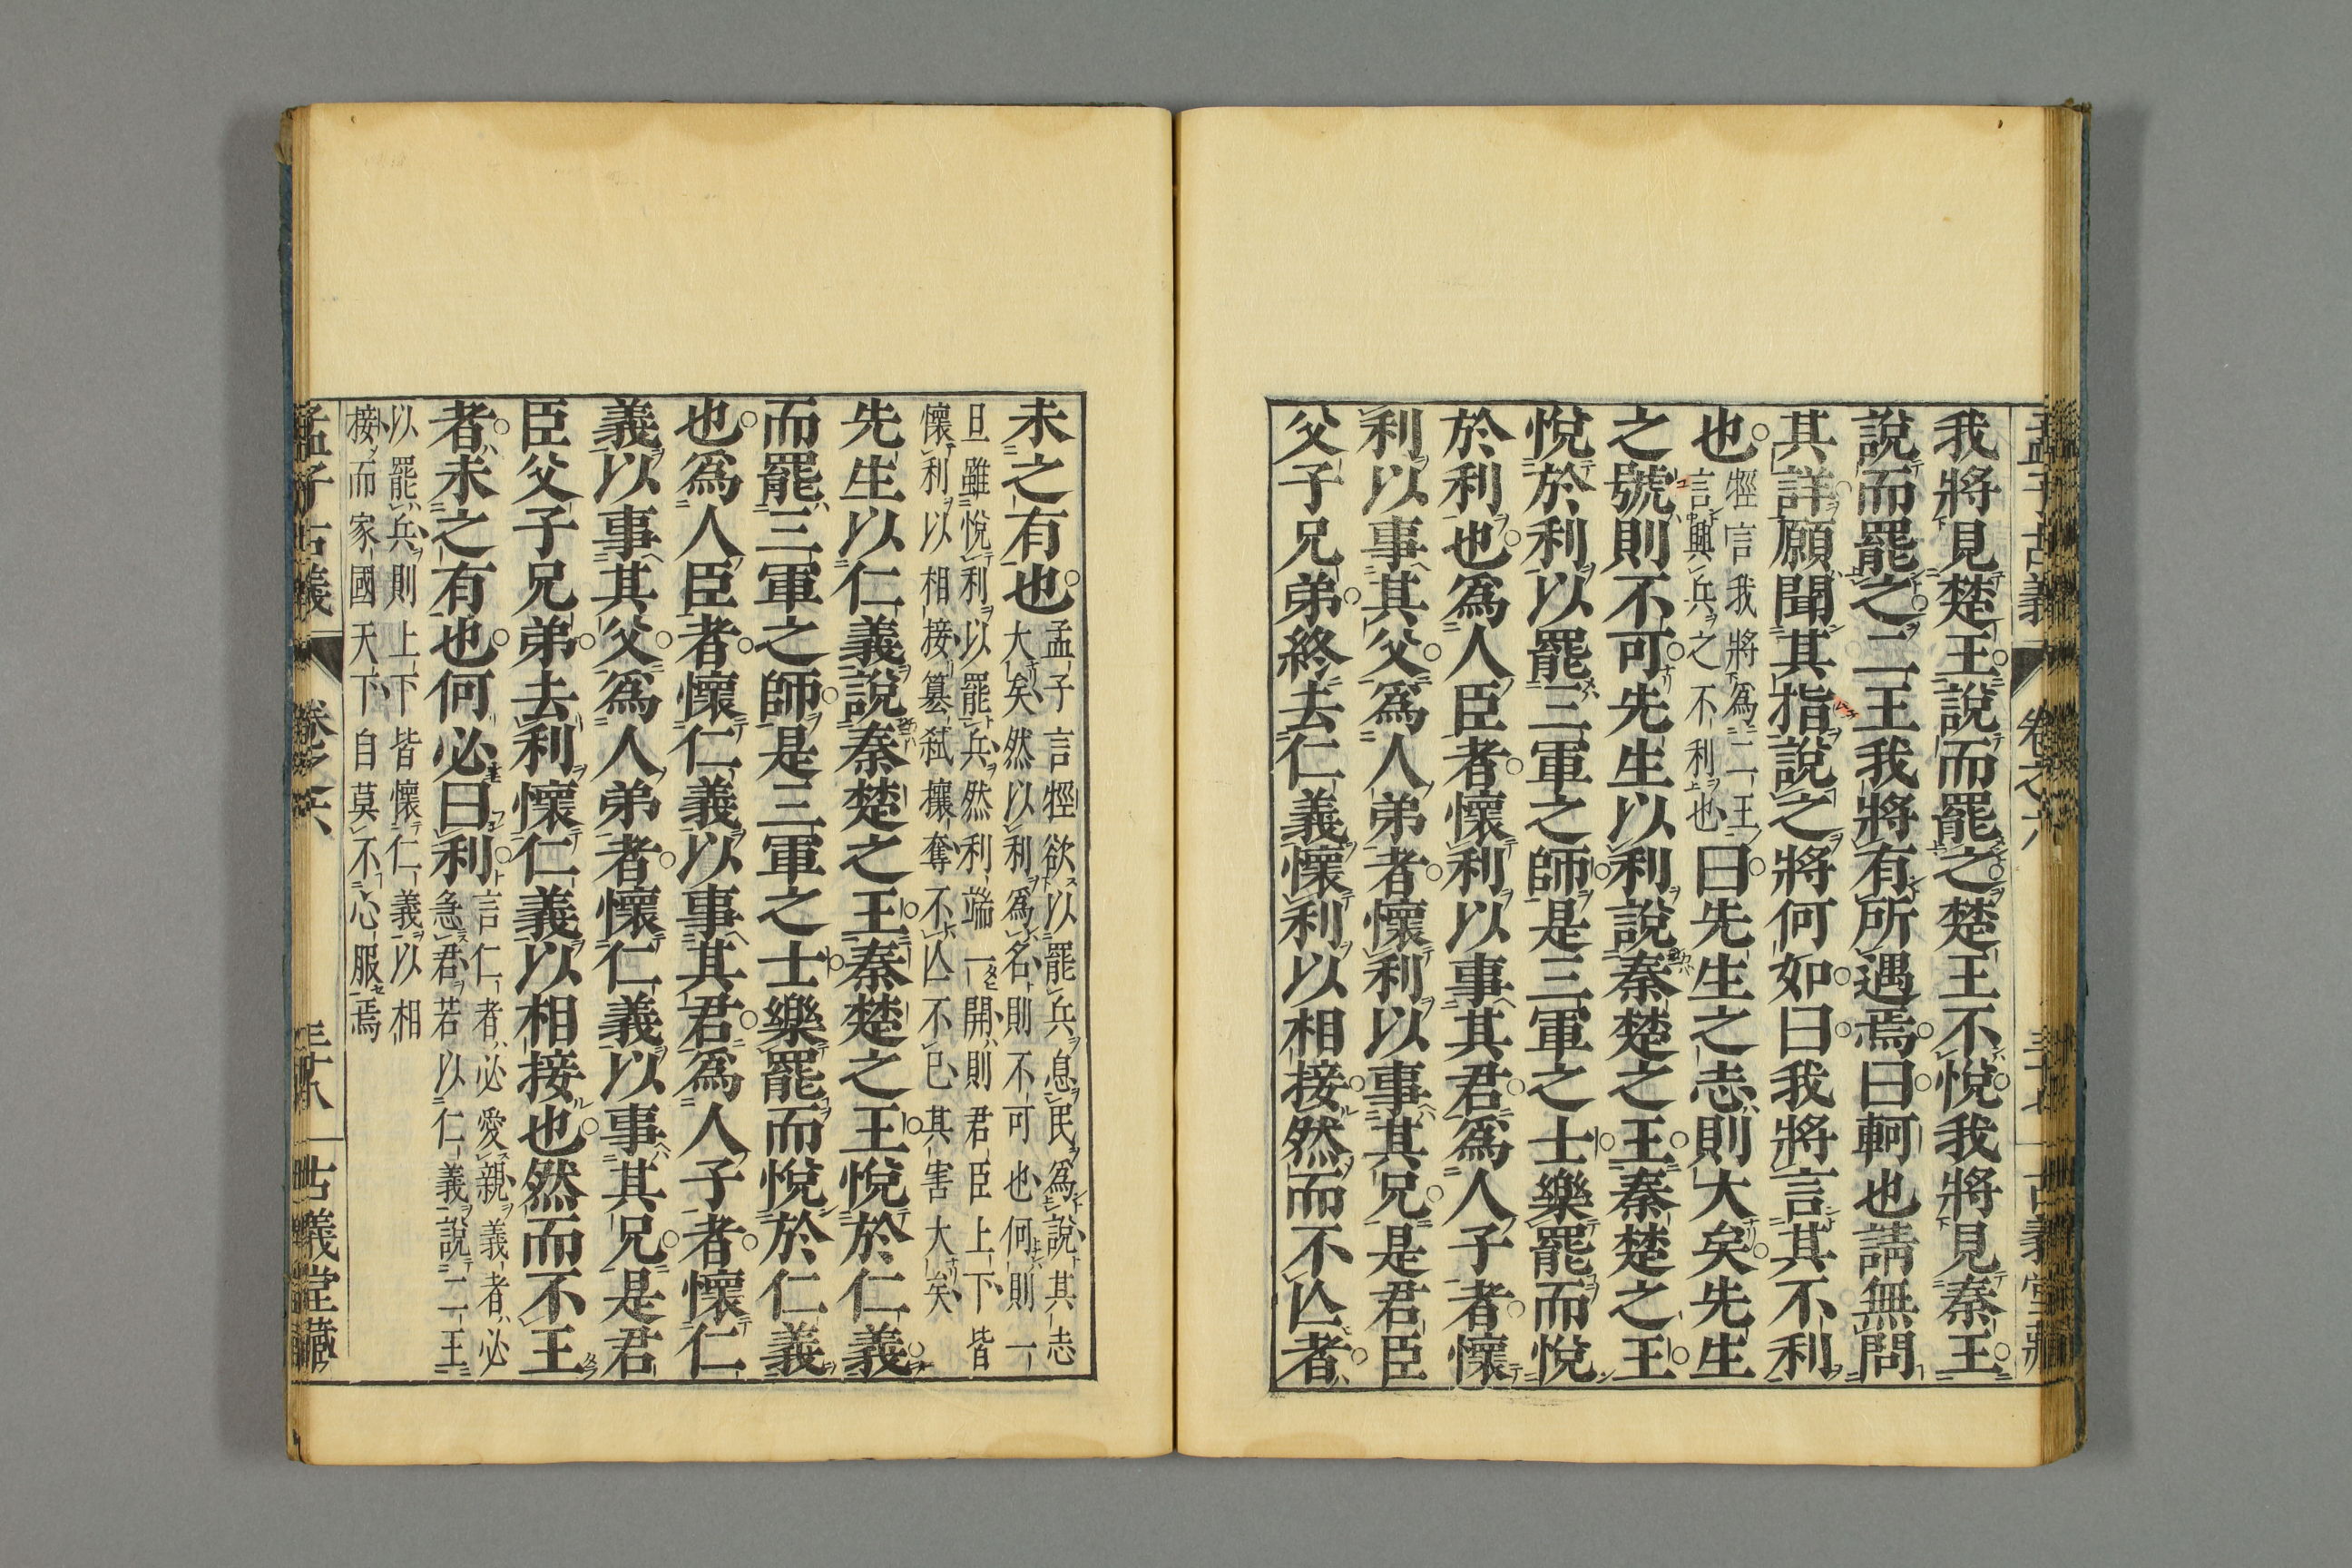 孟子古義 卷之六 三十七 古義堂藏
我將見楚王說而罷之楚王不悅我將見秦王
說而罷之二王我將有所遇焉曰軻也請無問
其詳願聞其指說之將何如曰我將言其不利
也
牼言我將爲二王
言興兵之不利也
曰先生之志則大矣先生
之號則不可先生以利說秦楚之王秦楚之王
悅於利以罷三軍之師是三軍之士樂罷而悅
於利也爲人臣者懷利以事其君爲人子者懷
利以事其父爲人弟者懷利以事其兄是君臣
父子兄弟終去仁義懷利以相接然而不亾者
未之有也
孟子言牼欲以罷兵息民爲說其志
大矣然以利爲名則不可也何則一
旦雖悅利以罷兵然利端一開則君臣上下皆
懷利以相接簒弒攘奪不亾不已其害大矣
先生以仁義說秦楚之王秦楚之王悅於仁義
而罷三軍之師是三軍之士樂罷而悅於仁義
也爲人臣者懷仁義以事其君爲人子者懷仁
義以事其父爲人弟者懷仁義以事其兄是君
臣父子兄弟去利懷仁義以相接也然而不王
者未之有也何必曰利
言仁者必愛親義者必
急君若以仁義說二王
以罷兵則上下皆懷仁義以相
接而家國天下自莫不心服焉
孟子古義 卷之六 三十八 古義堂藏